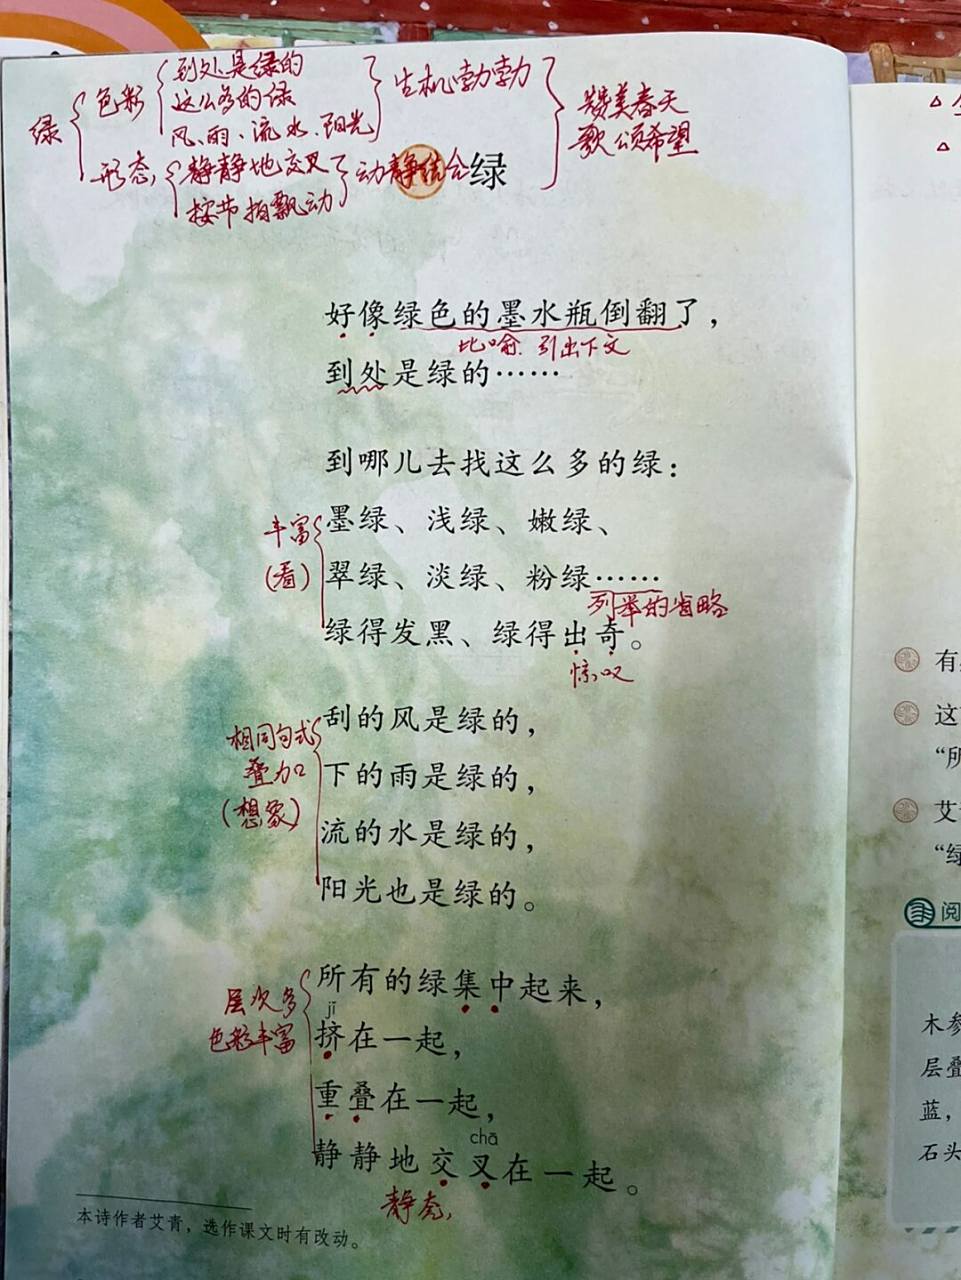 绿
色彩
到处是绿的
这么多的绿
风、雨、流水、阳光
生机勃勃
形态
静静地交叉
按节拍飘动
动静结合
赞美春天
歌颂希望
绿
好像绿色的墨水瓶倒翻了，
比喻 引出下文
到处是绿的……
到哪儿去找这么多的绿：
墨绿、浅绿、嫩绿、
丰富
(看)
翠绿、淡绿、粉绿……
列举的省略
绿得发黑、绿得出奇。
惊叹
刮的风是绿的，
相同句式
叠加
(想象)
下的雨是绿的，
流的水是绿的，
阳光也是绿的。
所有的绿集中起来，
层次多
色彩丰富
jǐ
挤在一起，
重叠在一起，
chā
静静地交叉在一起。
静态
本诗作者艾青，选作课文时有改动。
有
这
“所
艾
“绿
阅
木参
层叠
蓝，
石头